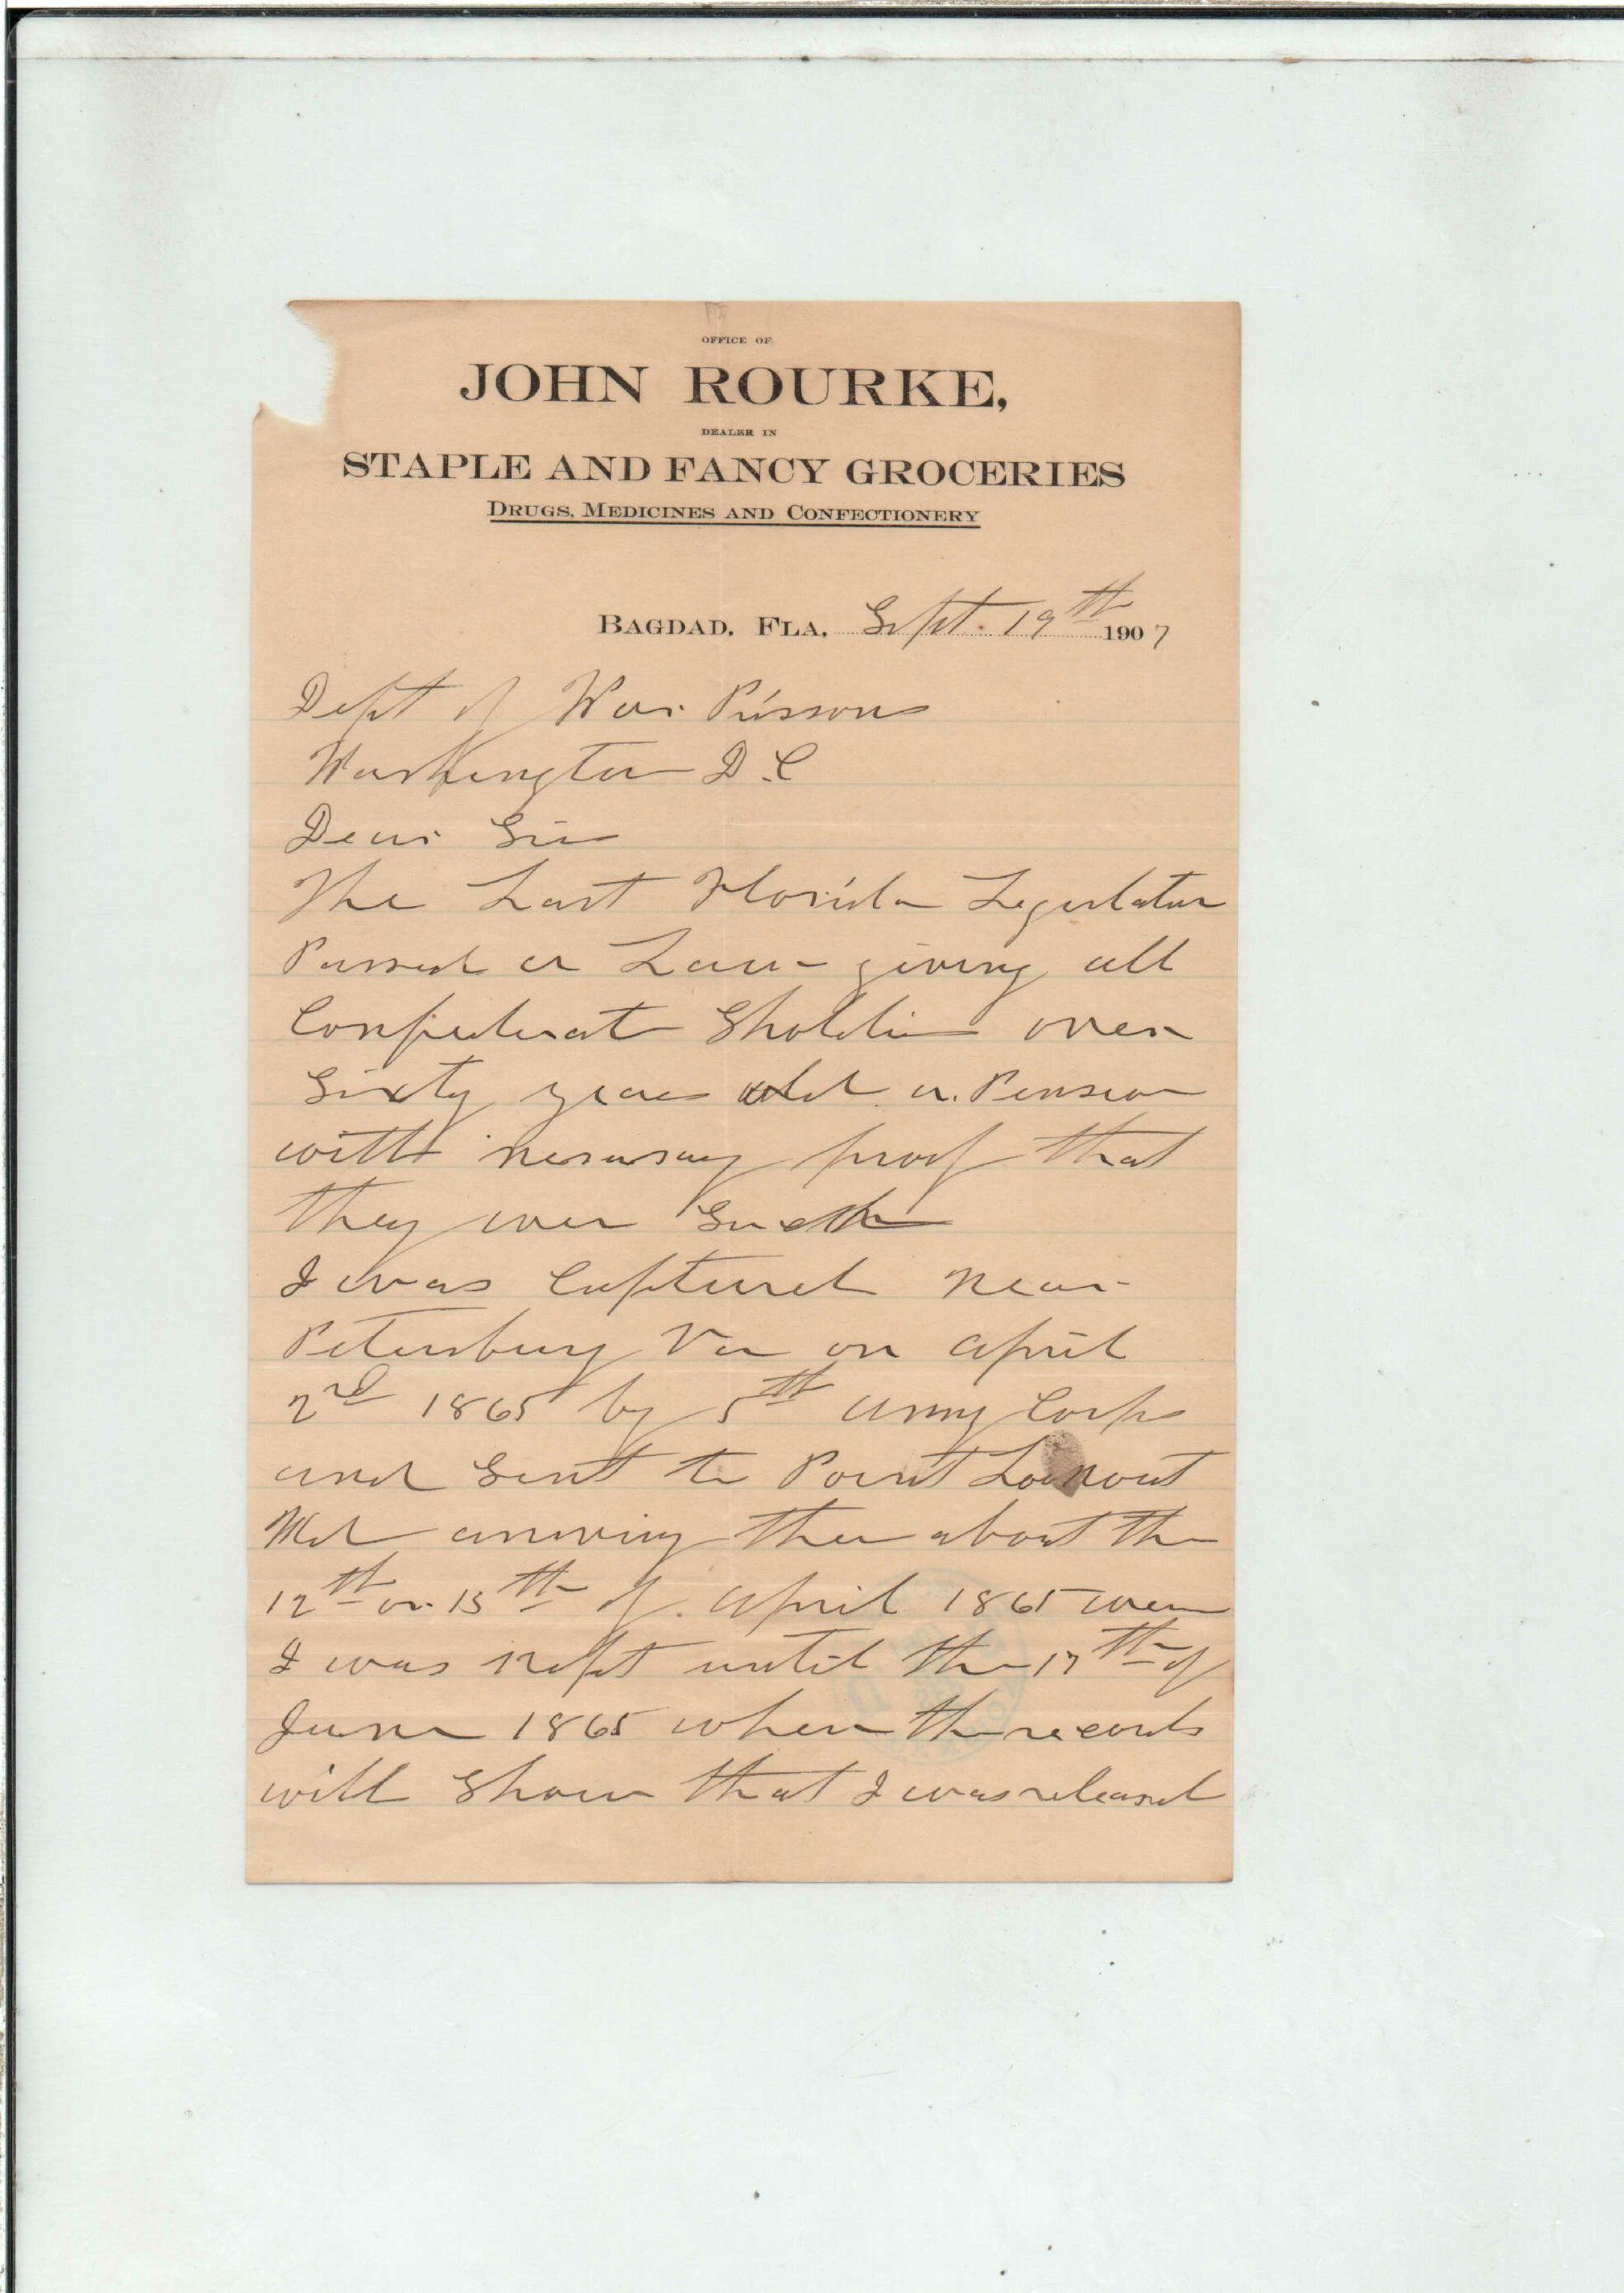 OFFICE OF
JOHN ROURKE,
DEALER IN
STAPLE AND FANCY GROCERIES
DRUGS, MEDICINES AND CONFECTIONERY
BAGDAD, FLA. Sept. 19th 1907
Dept of War Prisons
Washington D.C
Dear Sir
The Last Florida Legislatur
Passed a Law giving all
Confederat over
Sixty years old a Pension
with proof that
they wer Such
I was Captured near
Petersburg Va on April
2nd 1865 by 5th Army Corps
and Sent to Point Lookout
Md arriving ther about the
12th or 13th of April 1865 wer
I was Kept until the 17th of
June 1865 when the records
will Show that I was released